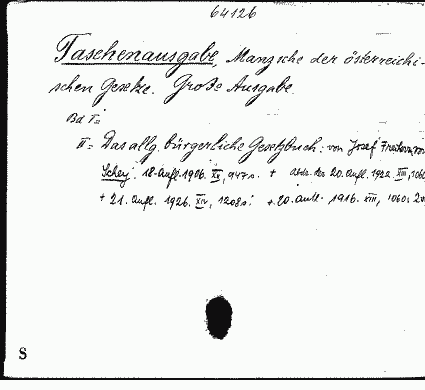 64126
Taschenausgabe, Manzsche der österreichi-
schen Gesetze. Große Ausgabe.
Bd I=
II= Das allg. bürgerliche Gesetzbuch. von Josef Freiherrn von
Schey. 18. Aufl. 1906. XX, 947 s. + Abdr. der 20. Aufl. 1922. XIII, 1060
+ 21. Aufl. 1926. XIV, 1208 s. + 20. Aufl. 1916. XIII, 1060 s.
S